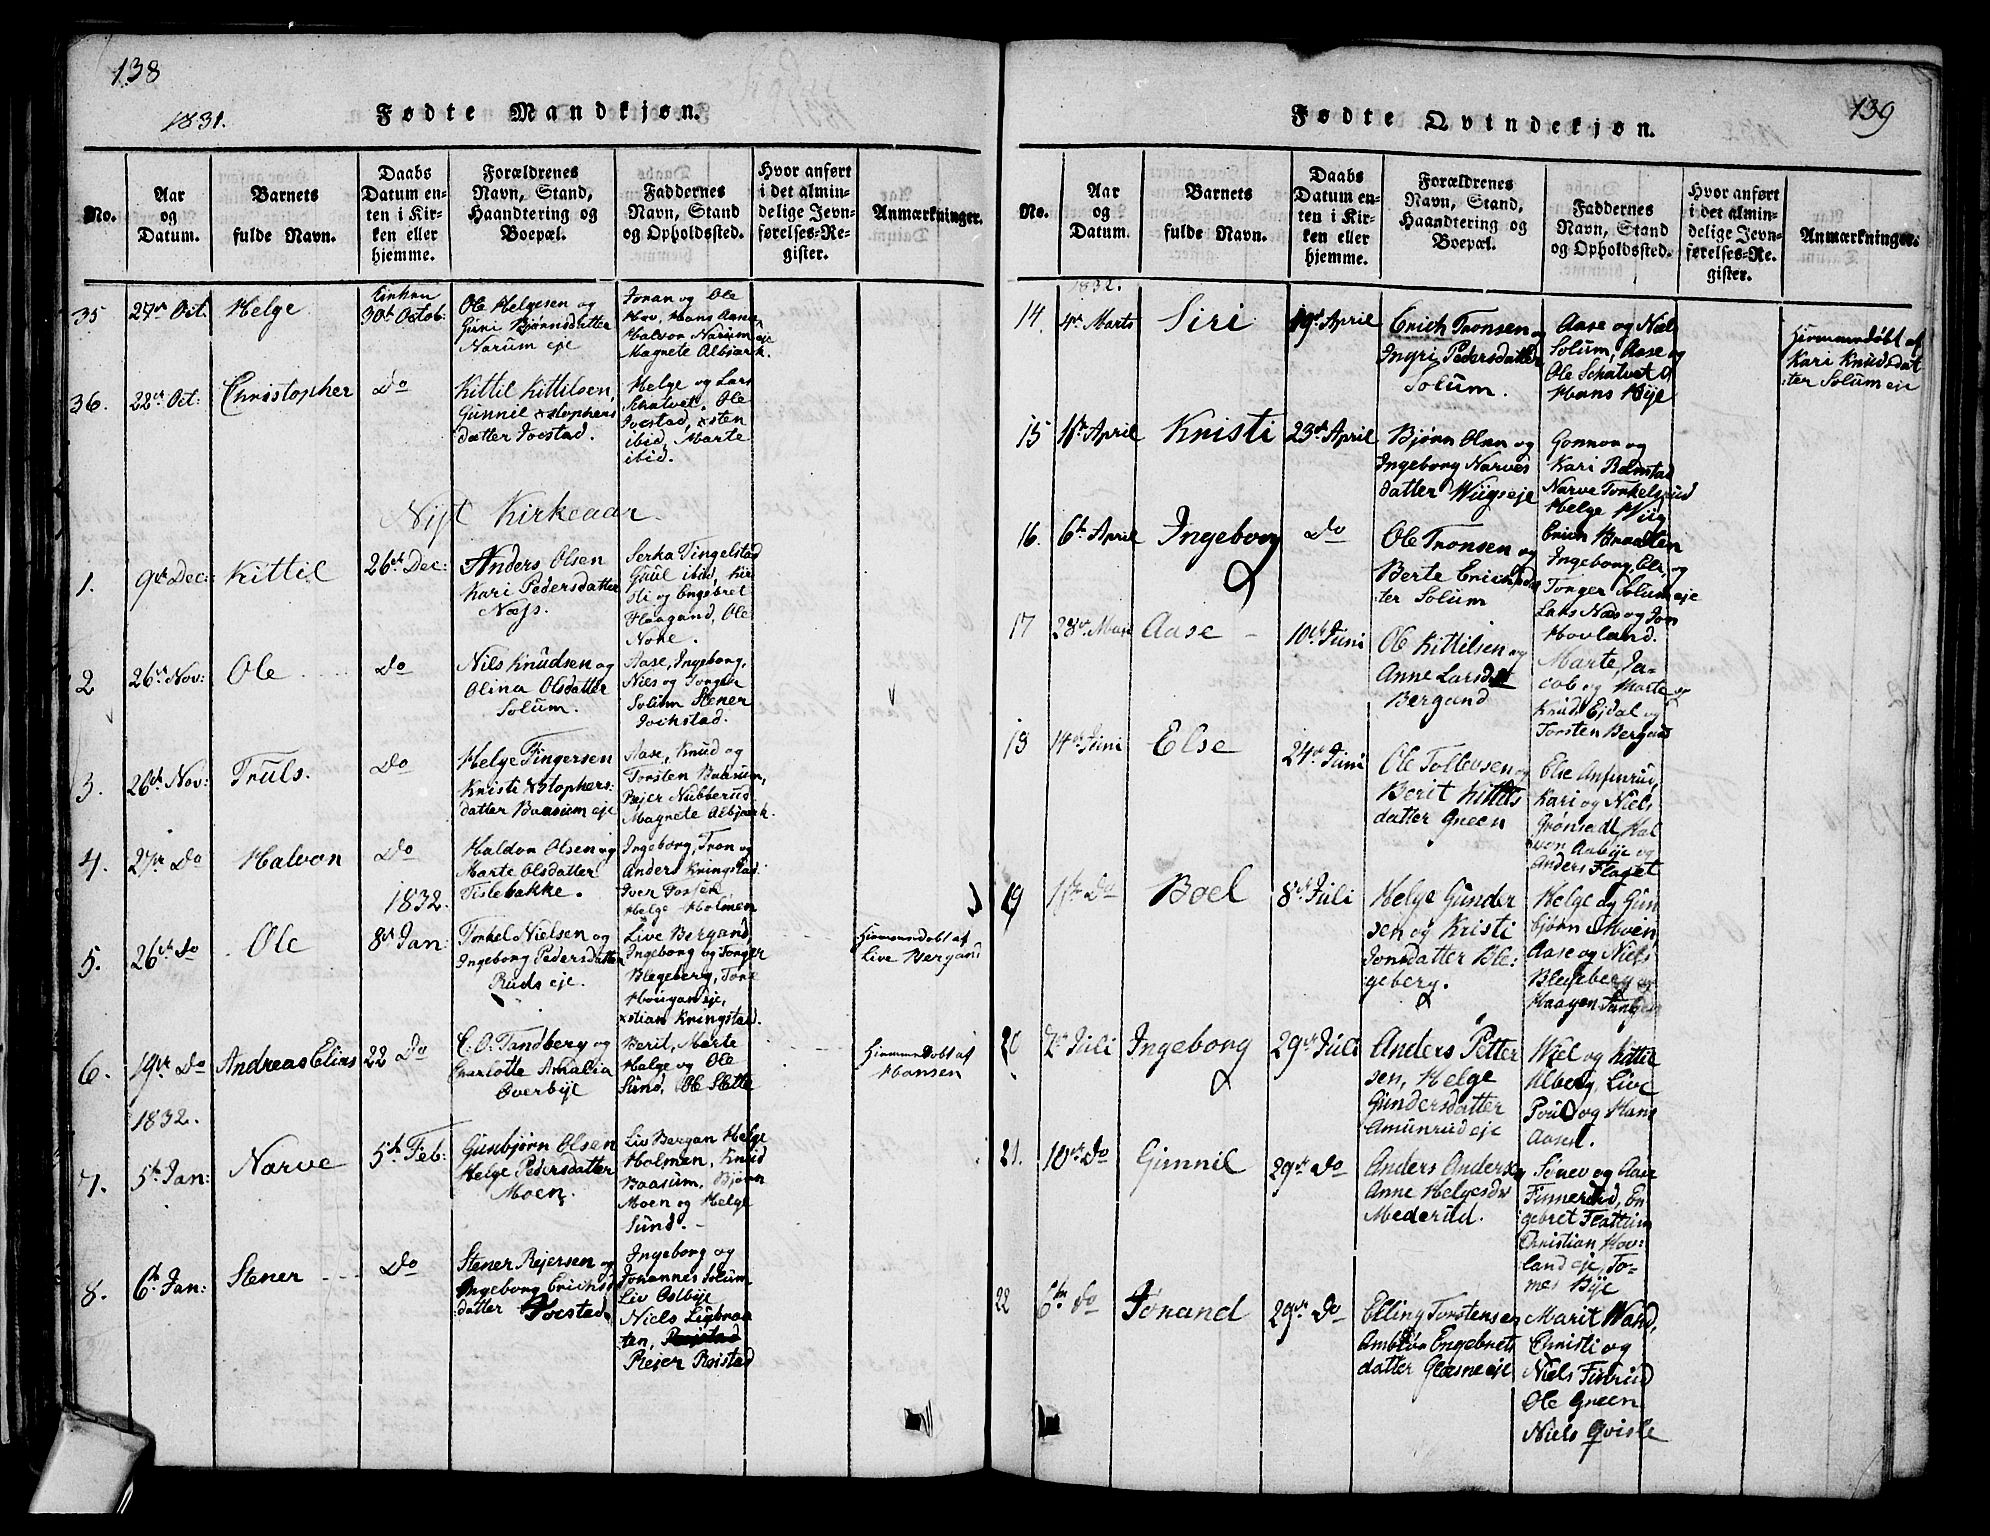 138
1831.
Fødte Mandkjøn.
No.
Aar
og
Datum.
Barnets
fulde Navn.
Daabs
Datum en-
ten i Kir-
ken eller
hjemme.
Forældrenes
Navn, Stand,
Haandtering og
Boepæl.
Faddernes
Navn, Stand
og Opholdssted.
Hvor anført
i det almin-
delige Jevn-
førelses-Re-
gister.
Anmærkninger.
35
27de Oct.
Helge
Kirken
30te Octob:
Ole Helgesen og
Guri Bjørnsdatter
Narum eje
Joran og Ole
Hov, Hans Aasn
Halvor Narum eje
Magnete Albjærk.
36.
22de Oct:
Christopher
Do
Kittil Kittilsen,
Gunnil xstophers
datter Joestad.
Helge og Lars
Schalvet, Ole
Joestad, xsten
ibid, Marte
ibid.
Nyt Kirkeaar.
1.
9de Dec:
Kittil
26de Dec:
Anders Olsen
Kari Pedersdatter
Næss.
Serka Tingelstad
Guul ibid, Kir
sti og Engebret
Haagand, Ole
More.
2
26de Nov:
Ole
Do
Nils Knudsen og
Olina Olsdatter
Solum.
Aase, Ingeborg,
Niels og Torger
Solum Stener
Jochstad.
3.
26de Nov:
Truls.
Do
Helge Fingersen
Kristi xstophers:
datter Baasum eje
Aase, Knud og
Torsten Baasum,
Rejer Nubberud
Magnete Albjærk.
4.
27de Do
Halvor
Do
Haldor Olsen og
Marte Olsdatter
Tislebakke.
Ingeborg, Tron og
Anders Kringstad
Iver Torsen,
Helge Holmen
1832.
5.
26de do
Ole
8de Jan:
Torkel Nielsen og
Ingeborg Pedersdatter
Ruds eje.
Live Bergand,
Ingeborg og Torger
Blegeberg, Tore
Hougans eje,
xstian Kringstad.
Hiemmedøbt af
Live Bergand
6.
19de Do
Andreas Elias
22 Do
C. O. Tandberg og
Charlotte Amalia
Overbye
Berit, Marte
Helge og Ole
Sund, Ole Slette
Hiemmedøbt af
Hansen
1832.
7.
5te Jan:
Narve
5te Feb:
Gunbjørn Olsen
Helge Pedersdatter
Moen.
Liv Bergan Helge
Holmen, Knud
Baasum, Bjørn
Moen og Helge
Sund.
8.
6te Jan:
Stener
Do
Stener Rejersen og
Ingeborg Erichs
datter Joestad.
Ingeborg og
Johannes Solum
Liv Oslbye
Niels Ligbraa
ten,
Rejer Roistad
139
Fødte Qvindekjøn.
No.
Aar
og
Datum.
Barnets
fulde Navn.
Daabs
Datum en-
ten i Kir-
ken eller
hjemme.
Forældrenes
Navn, Stand,
Haandtering og
Boepæl.
Faddernes
Navn, Stand
og Opholdssted.
Hvor anført
i det almin-
delige Jevn-
førelses-Re-
gister.
Anmærkninger.
1832.
14.
4de Marts
Siri
19de April
Erich Tronsen og
Ingri Pedersdatter
Solum.
Aase og Niel
Solum, Aase og
Ole Schalvet og
Hans Bye
Hiemmedøbt af
Kari Knudsdat
ter Solum eje
15
11te April
Kristi
23de April
Bjørn Olsn og
Ingeborg Narves
datter Wiigseje
Gonnor og
Kari Ramstad
Narve Torkelsrud
Helge Wiig
16.
6te April
Ingeborg
Do
Ole Tronsen og
Berte Erichsdat
ter Solum
Erich Braaten
Ingeborg, Eli, og
Torger Solum eje
Lars Næs og Jon
Hovland.
17
28de Mai
Aase
10de Juni
Ole Kittilsen og
Anne Larsdat
Bergand
Marte, Ja-
cob og Marte og
Knud Ejdal og
Torsten Bergand
18
14de Juni
Else
24de Juni
Ole Tollevsen og
Berit Kittils
datter Green
Else Anfinrud,
Kari og Niels
Grønsedt, Hal
vor Aabye og
Anders Flaget
19
11te Do
Boel
8de Juli
Helge Gunder
sen og Kristi
Jonsdatter Ble:
geberg.
Helge og Gun
bjørn Moen,
Aase og Niels
Blegeberg og
Haagen Tangen
20
7de Juli
Ingeborg
29de Juli
Anders Petter
sen, Helge
Gundersdatter
Amunrud eje
Kjel og Kittil
Alberg, Live
Poul og Hans
Aased.
21.
10de Do
Gunnil
29de Do
Anders Anders og
Anne Helgesdr
Mederud.
Siner og Aase
Finnerud, En
gebret Flattum
Christian Hov:
land eje, To-
mes Bye
22
6te do
Jørand
29de Do
Elling Torstensen
Amblør Engebrets
datter Glæsne eje
Marit Wand,
Christi og
Niels Finrud
Ole Green
Niels Qvisle